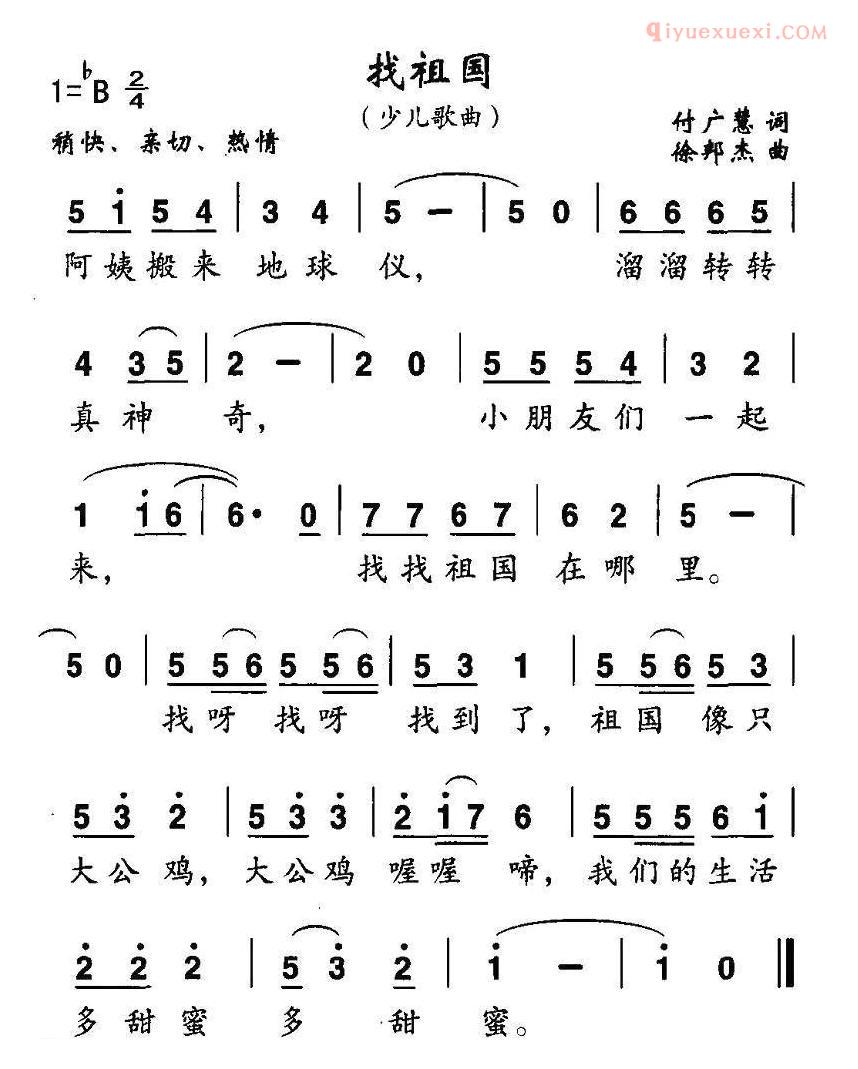 qiyuexuexi.com
找祖国
1=♭B 2/4
（少儿歌曲）
稍快、亲切、热情
付广慧 词
徐邦杰 曲
5 i 5 4 | 3 4 | 5 － | 5 0 | 6 6 6 5 |
阿姨搬来 地球 仪， 溜溜转转
4 3 5 | 2 － | 2 0 | 5 5 5 4 | 3 2 |
真神 奇， 小朋友们 一起
1 i 6 | 6· 0 | 7 7 6 7 | 6 2 | 5 － |
来， 找找祖国 在哪 里。
5 0 | 5 5 6 5 5 6 | 5 3 1 | 5 5 6 5 3 |
找呀 找呀 找到 了，祖国 像只
5 3̇ 2̇ | 5 3̇ 3̇ | 2̇ i 7 6 | 5 5 5 6 i |
大公 鸡，大公鸡 喔喔 啼，我们的生活
2̇ 2̇ 2̇ | 5 3̇ 2̇ | i － | i 0 ‖
多甜蜜 多 甜 蜜。